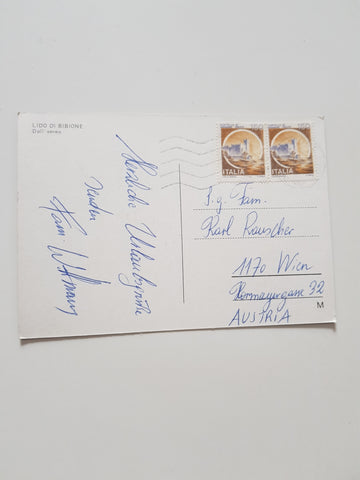 LIDO DI BIBIONE
Dall'aereo
Herzliche Urlaubsgrüße
senden
Fam.
ITALIA
ITALIA
S.g. Fam.
Karl Rauscher
1170 Wien
32
AUSTRIA
M